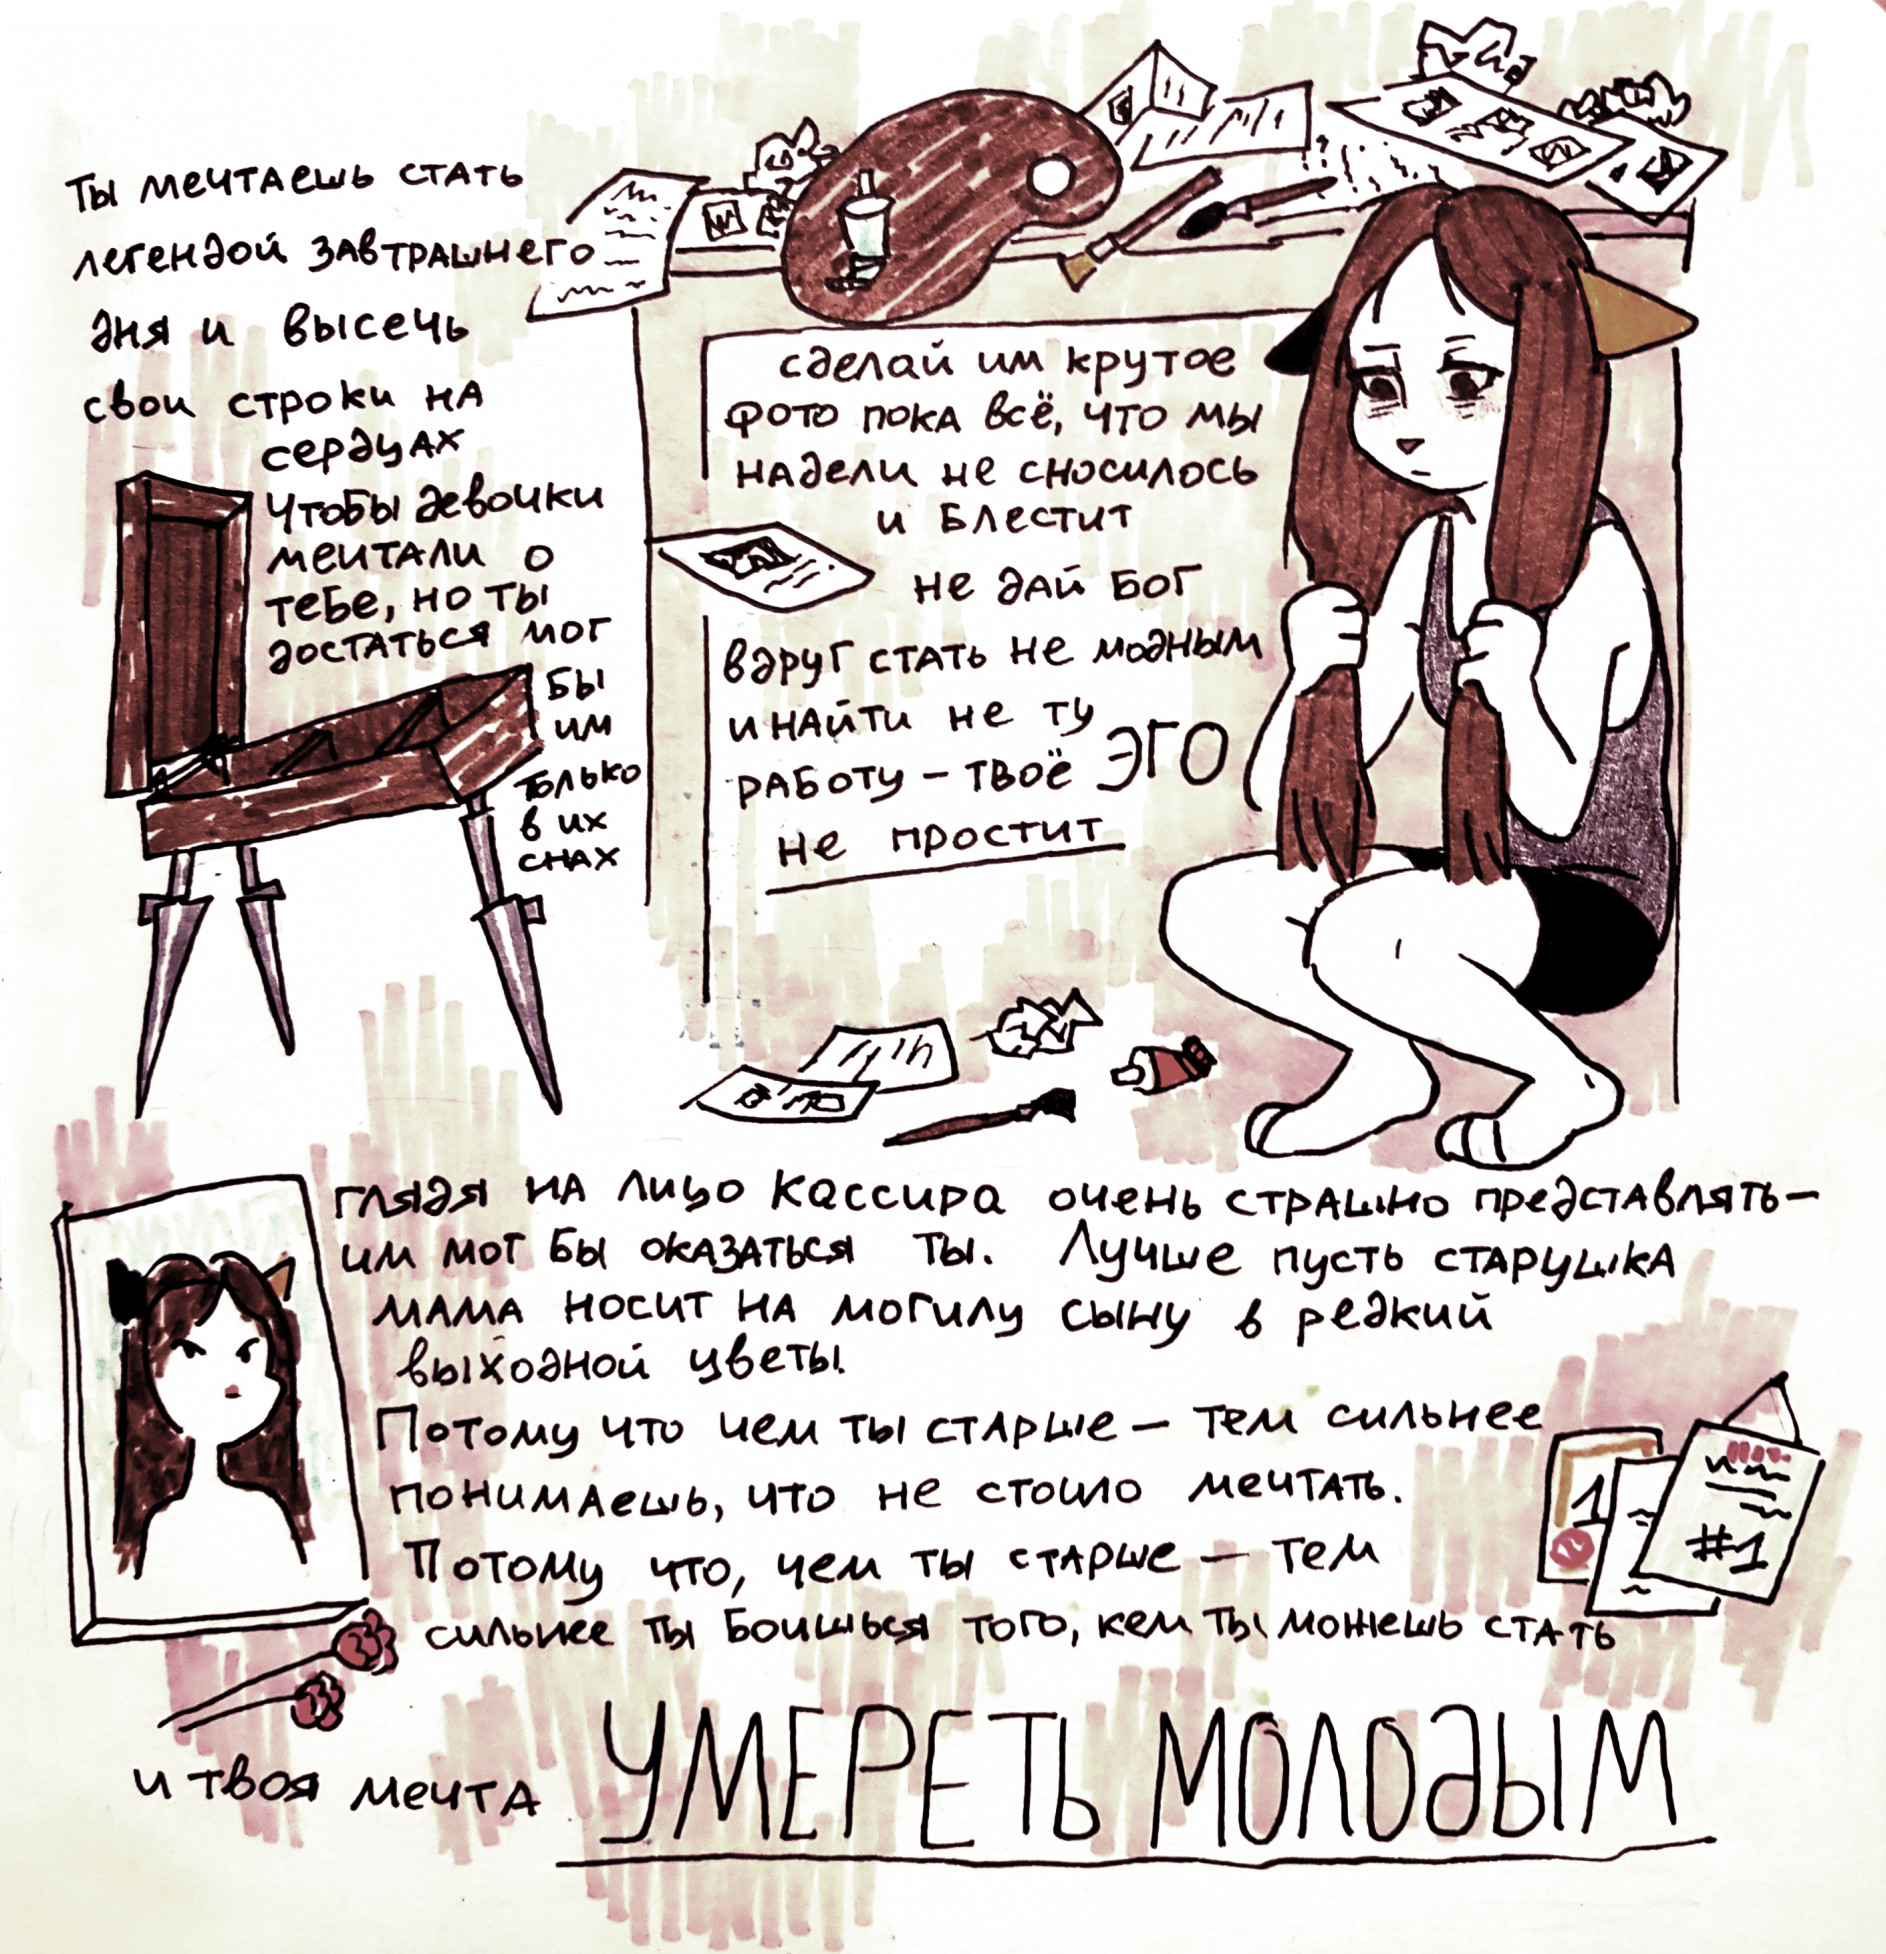 ты мечтаешь стать
легендой завтрашнего
дня и высечь
свои строки на
сердцах
чтобы девочки
мечтали о
тебе, но ты
достаться мог
бы
им
только
в их
снах
сделай им крутое
фото пока всё, что мы
надели не сносилось
и блестит
не дай бог
вдруг стать не модным
и найти не ту
работу – твоё ЭГО
не простит
глядя на лицо кассира очень страшно представлять –
им мог бы оказаться ты. Лучше пусть старушка
мама носит на могилу сыну в редкий
выходной цветы.
Потому что чем ты старше – тем сильнее
понимаешь, что не стоило мечтать.
Потому что, чем ты старше – тем
сильнее ты боишься того, кем ты можешь стать
1
#1
и твоя мечта УМЕРЕТЬ МОЛОДЫМ